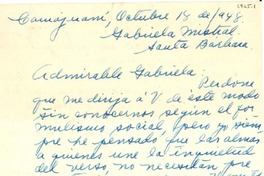 Camajuaní, Octubre 18 de/948.
Gabriela Mistral.
Santa Bárbara.
Admirable Gabriela: Perdone
que me dirija á V de este modo
sin conocernos según el for
mulismo social, pero yo siem
pre he pensado que las almas
a quienes une la inquietud
del verso, no necesitan pre